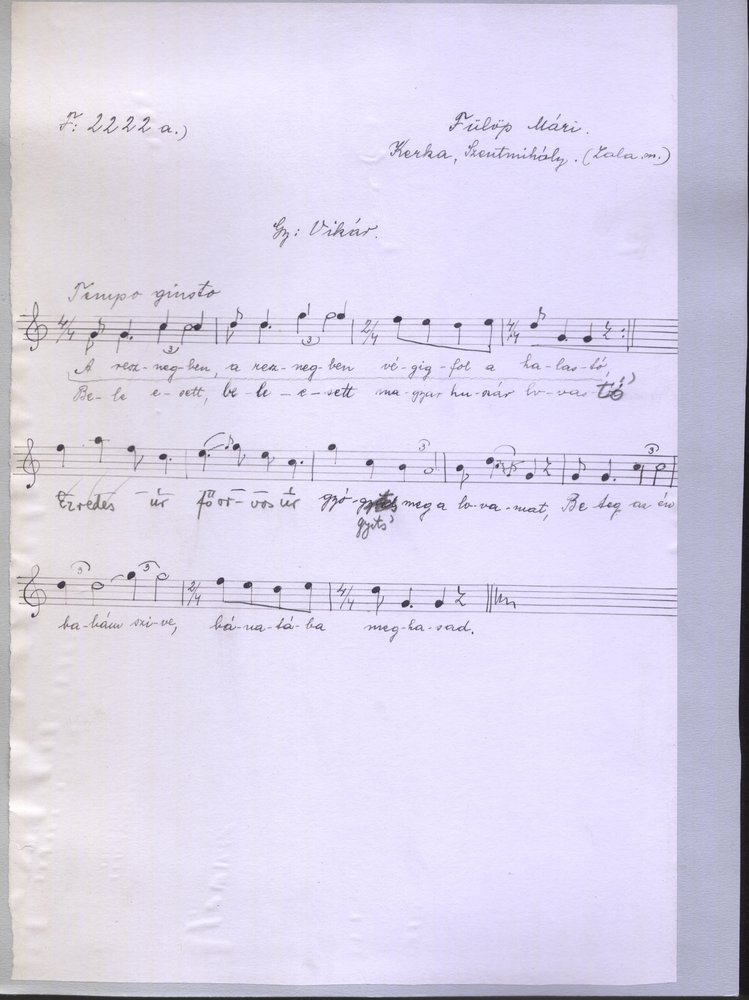 F: 2222 a.)
Fülöp Mári.
Kerka, Szentmihály. (Zala m.)
Gy: Vikár.
Tempo giusto
4/4 3 3 2/4 4/4
A resz-neg-ben, a rez-neg-ben vé-gig-fol a ha-las-tó,
Be-le e-sett, be-le-e-sett ma-gyar hu-szár lo-vas-tó
3 3
Ezredes úr főor-vos úr gyó- meg a lo-va-mat, Be teg az én
gyits
3 3 2/4 4/4
ba-bám szi-ve, bá-na-tá-ba meg-ha-sad.